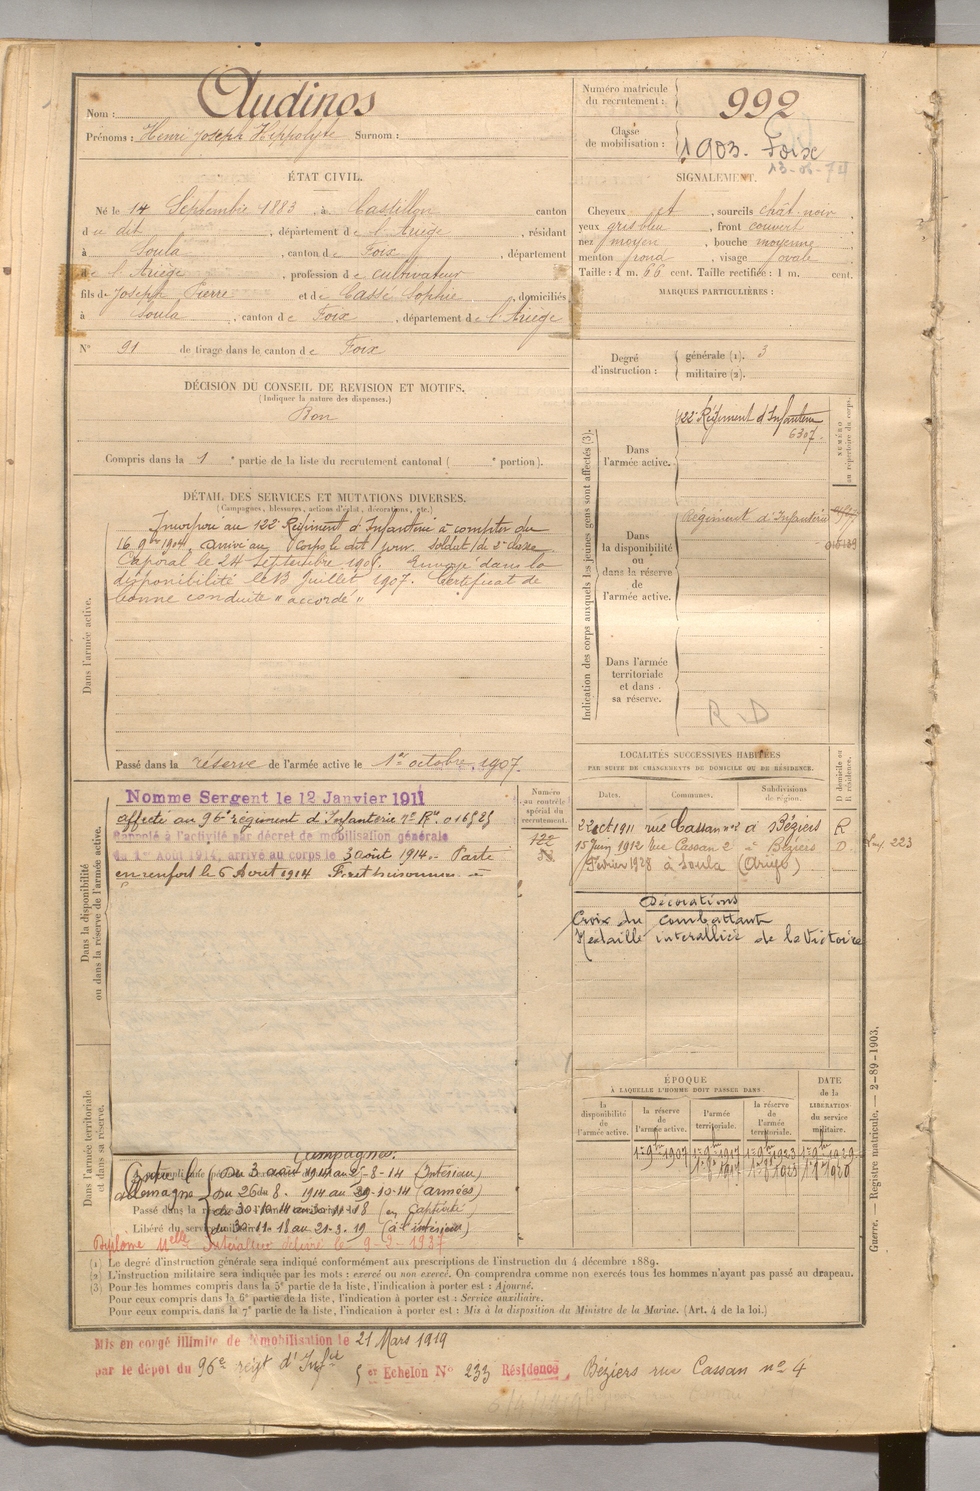 Nom : Audinos
Prénoms : Henri Joseph Hippolyte Surnom :
Numéro matricule du recrutement : 992
Classe de mobilisation : 1903. Foix
ÉTAT CIVIL.
Né le 14 Septembre 1883, à Castillon canton
du dit, département de l'Ariège, résidant
à Soula, canton de Foix, département
de l'Ariège, profession de cultivateur
fils de Joseph Pierre et de Cassé Sophie, domiciliés
à Soula, canton de Foix, département de l'Ariège
N° 91 de tirage dans le canton de Foix
SIGNALEMENT.
Cheveux et, sourcils chât. noir
yeux gris bleu, front couvert
nez moyen, bouche moyenne
menton rond, visage ovale
Taille : 1 m. 66 cent. Taille rectifiée : 1 m. cent.
MARQUES PARTICULIÈRES :
Degré d'instruction : générale (1). 3
militaire (2).
DÉCISION DU CONSEIL DE REVISION ET MOTIFS.
(Indiquer la nature des dispenses.)
Bon
Compris dans la 1e partie de la liste du recrutement cantonal ( e portion).
DÉTAIL DES SERVICES ET MUTATIONS DIVERSES.
(Campagnes, blessures, actions d'éclat, décorations, etc.)
Dans l'armée active.
Incorporé au 122e Régiment d'Infanterie à compter du
16 9bre 1904 arrivé au Corps le dit jour soldat de 2e classe
Caporal le 24 Septembre 190 Envoyé dans la
disponibilité le 13 Juillet 1907. Certificat de
bonne conduite "accordé"
Passé dans la réserve de l'armée active le 1er octobre 1907.
Indication des corps auxquels les jeunes gens sont affectés (3).
Dans l'armée active.
122e Régiment d'Infanterie
6307.
NUMÉRO au répertoire du corps.
Dans la disponibilité ou dans la réserve de l'armée active.
Régiment d'Infanterie
Dans l'armée territoriale et dans sa réserve.
R. D
Dans la disponibilité ou dans la réserve de l'armée active.
Nomme Sergent le 12 Janvier 1911
affecté au 96e régiment d'Infanterie
Rappelé à l'activité par décret de mobilisation générale
du 1er Août 1914, arrivé au corps le 3 août 1914. Parti
en renfort le 6 Août 1914 Fait prisonnier
Numéro au contrôle spécial du recrutement.
122
LOCALITÉS SUCCESSIVES HABITÉES
PAR SUITE DE CHANGEMENTS DE DOMICILE OU DE RÉSIDENCE.
D domicile ou R résidence.
Dates. Communes. Subdivisions de région.
22 oct 1911 rue Cassan n° 2 à Béziers R
15 Juin 1912 rue Cassan 2 à Béziers D. 223
Février 1928 à Soula (Ariège)
Décorations
Croix du combattant
Médaille interalliée de la Victoire
ÉPOQUE
À LAQUELLE L'HOMME DOIT PASSER DANS
la disponibilité de l'armée active.
la réserve de l'armée active.
l'armée territoriale.
la réserve de l'armée territoriale.
DATE de la LIBÉRATION du service militaire.
Dans l'armée territoriale et dans sa réserve.
Campagnes.
Contre l'Allemagne
du 3 août 1914 au -8-14 (Intérieur)
du 26 du 8. 1914 au 29-10-14 (armées)
Passé dans la r
du 30-10-14 au 11-18 (en Captivité)
Libéré du service
du 30-11-18 au 21-3-19 (à l'intérieur)
Diplome Melle Interalliée délivré le 9-2-1937
(1) Le degré d'instruction générale sera indiqué conformément aux prescriptions de l'instruction du 4 décembre 1889.
(2) L'instruction militaire sera indiquée par les mots : exercé ou non exercé. On comprendra comme non exercés tous les hommes n'ayant pas passé au drapeau.
(3) Pour les hommes compris dans la 5e partie de la liste, l'indication à porter est : Ajourné.
Pour ceux compris dans la 6e partie de la liste, l'indication à porter est : Service auxiliaire.
Pour ceux compris dans la 7e partie de la liste, l'indication à porter est : Mis à la disposition du Ministre de la Marine. (Art. 4 de la loi.)
Mis en congé illimité de démobilisation le 21 Mars 1919
par le dépôt du 96e régt d'Infie 5 er Echelon N° 233 Résidence, Béziers rue Cassan n° 4
Guerre. — Registre matricule. — 2-89-1903.